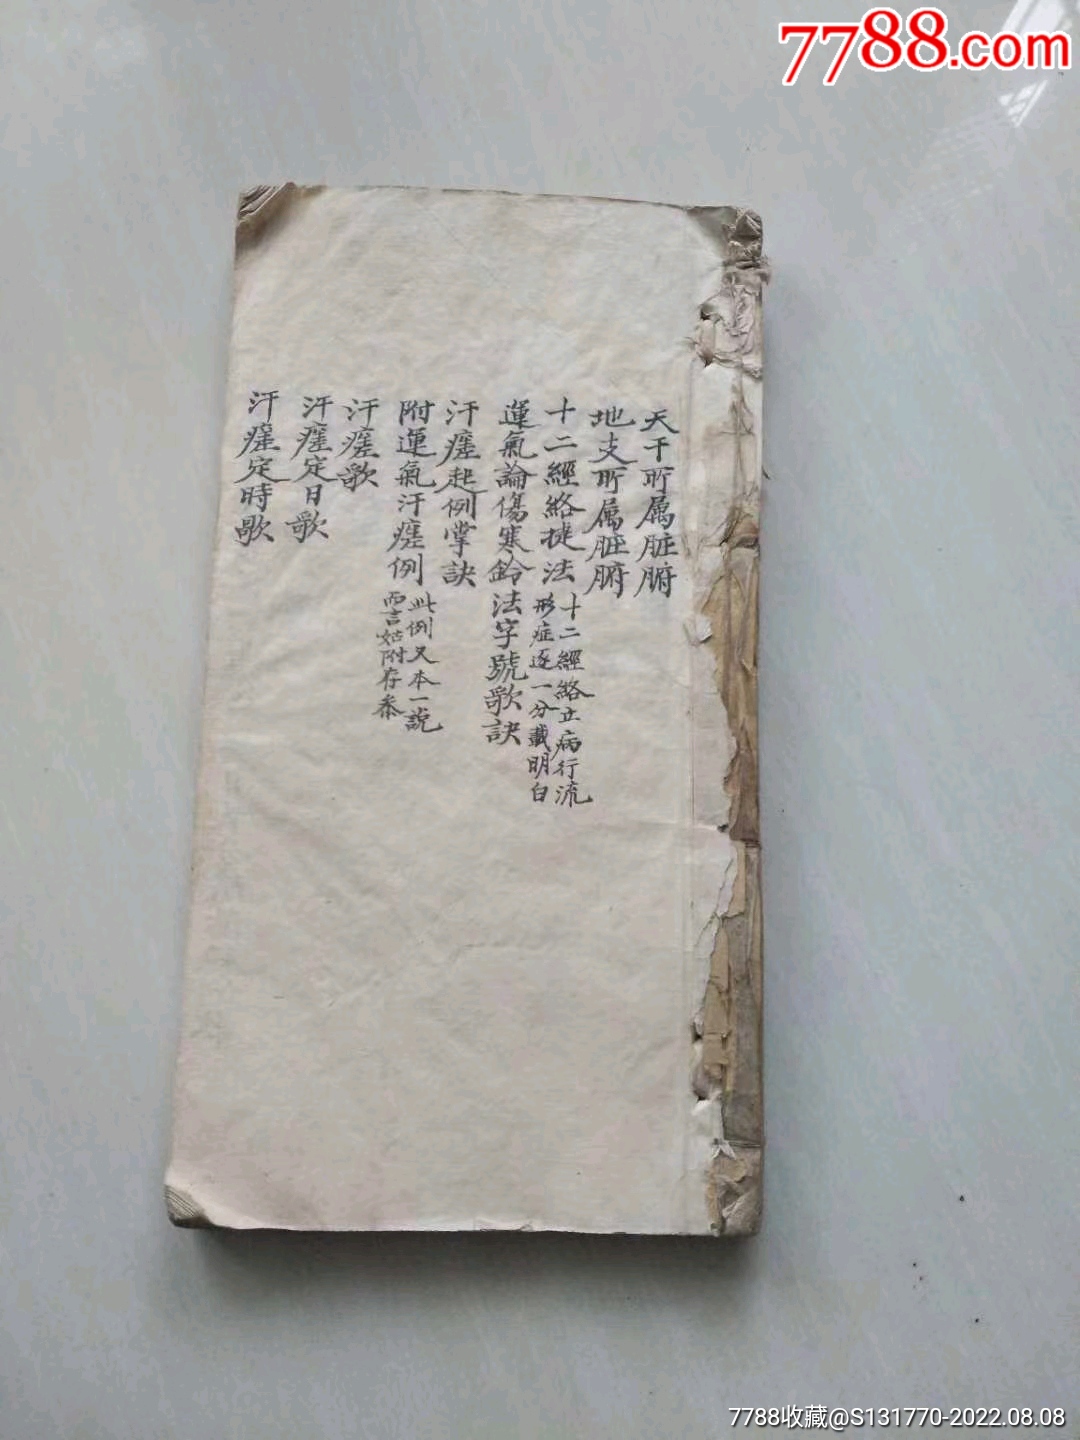 7788.com
天干所属脏腑
地支所属脏腑
十二經絡捷法
十二經絡立病行流
形症逐一分載明白
運氣論傷寒鈴法字號歌訣
汗瘥起例掌訣
附運氣汗瘥例
此例又本一說
而言姑附存叅
汗瘥歌
汗瘥定日歌
汗瘥定時歌
7788收藏@S131770-2022.08.08